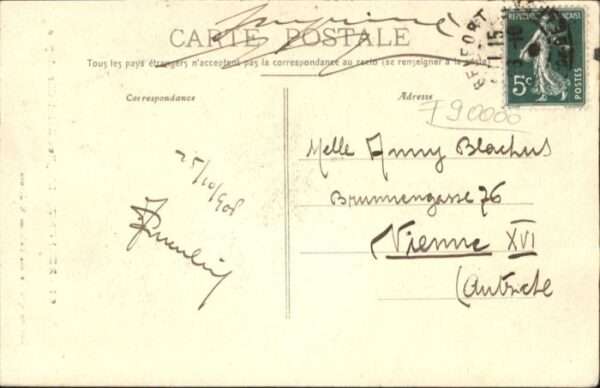 Imprimé
CARTE POSTALE
Tous les pays étrangers n'acceptent pas la correspondance au recto (se renseigner à la poste)
RÉPUBLIQUE FRANÇAISE
5c
POSTES
BELFORT
Correspondance
Adresse
T90000
Melle Anny Blachus
Brunnengasse 76
Vienne XVI
(Autriche
25/10/908